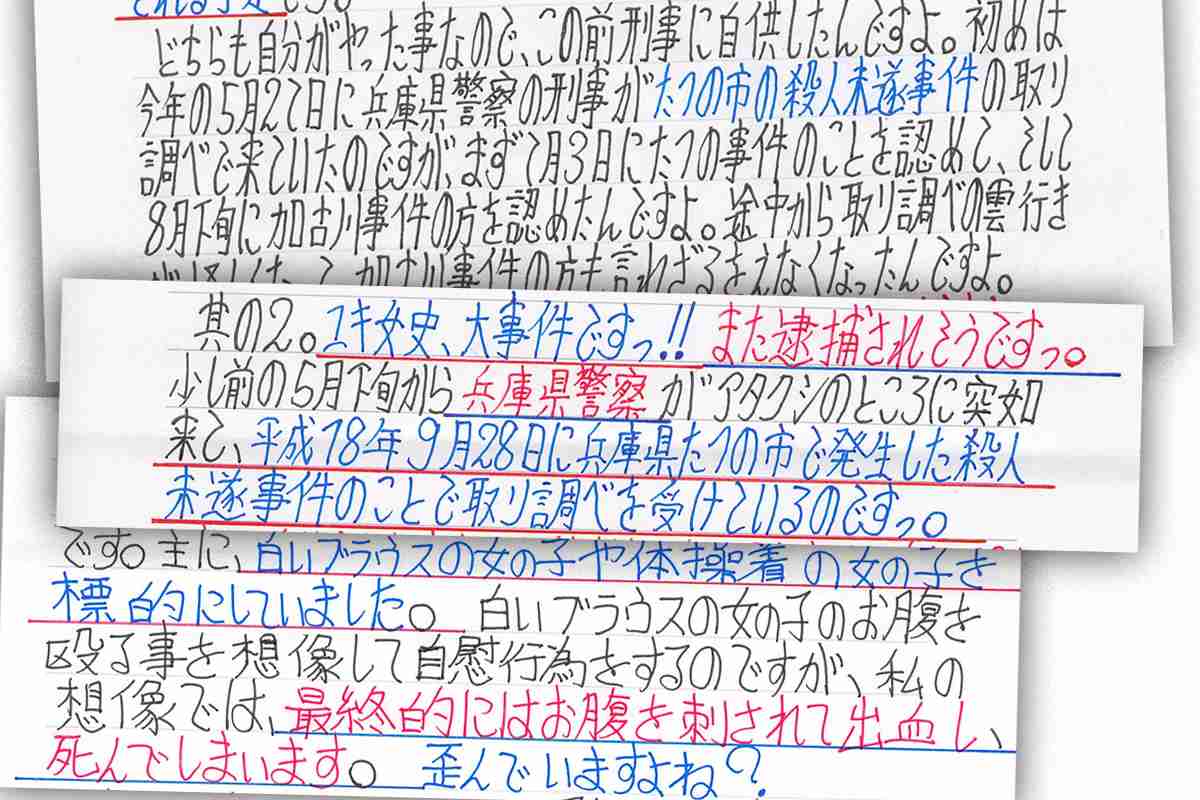 どちらも自分がやった事なので、この前刑事に自供したんですよ。初めは
今年の5月27日に兵庫県警察の刑事がたつの市の殺人未遂事件の取り
調べで来ていたのですが、まず7月3日にたつの事件のことを認めて、そして
8月下旬に加古川事件の方を認めたんですよ。途中から取り調べの雲行き
加古川事件の方も言わざるをえなくなったんですよ。
其の2。ユキ女史、大事件ですっ!! また逮捕されそうですっ。
少し前の5月下旬から兵庫県警察がアタクシのところに突如
来て、平成18年9月28日に兵庫県たつの市で発生した殺人
未遂事件のことで取り調べを受けているのですっ。
です。主に、白いブラウスの女の子や体操着の女の子を
標的にしていました。白いブラウスの女の子のお腹を
殴る事を想像して自慰行為をするのですが、私の
想像では、最終的にはお腹を刺されて出血し、
死んでしまいます。歪んでいますよね?